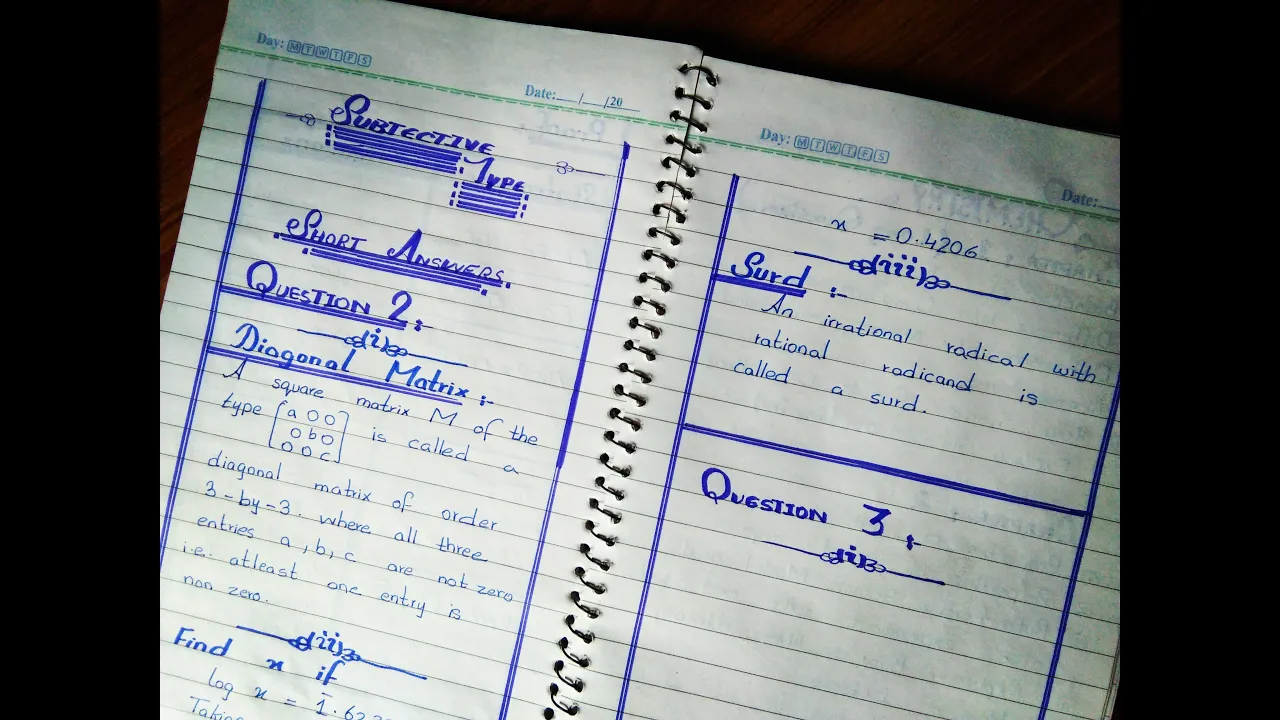 Day: M T W T F S
Date:__/__/20__
SUBTECTIVE
TYPE
SHORT ANSWERS.
QUESTION 2 :
(i)
Diagonal Matrix :-
A square matrix M of the
type [a 0 0
0 b 0
0 0 c] is called a
diagonal matrix of order
3-by-3. where all three
entries a, b, c are not zero
i.e. atleast one entry is
non zero.
(ii)
Find x if
log x = 1̄.62
Taking
Day: M T W T F S
Date:__
x = 0.4206
(iii)
Surd :-
An irrational radical with
rational radicand is
called a surd.
QUESTION 3 :
(i)